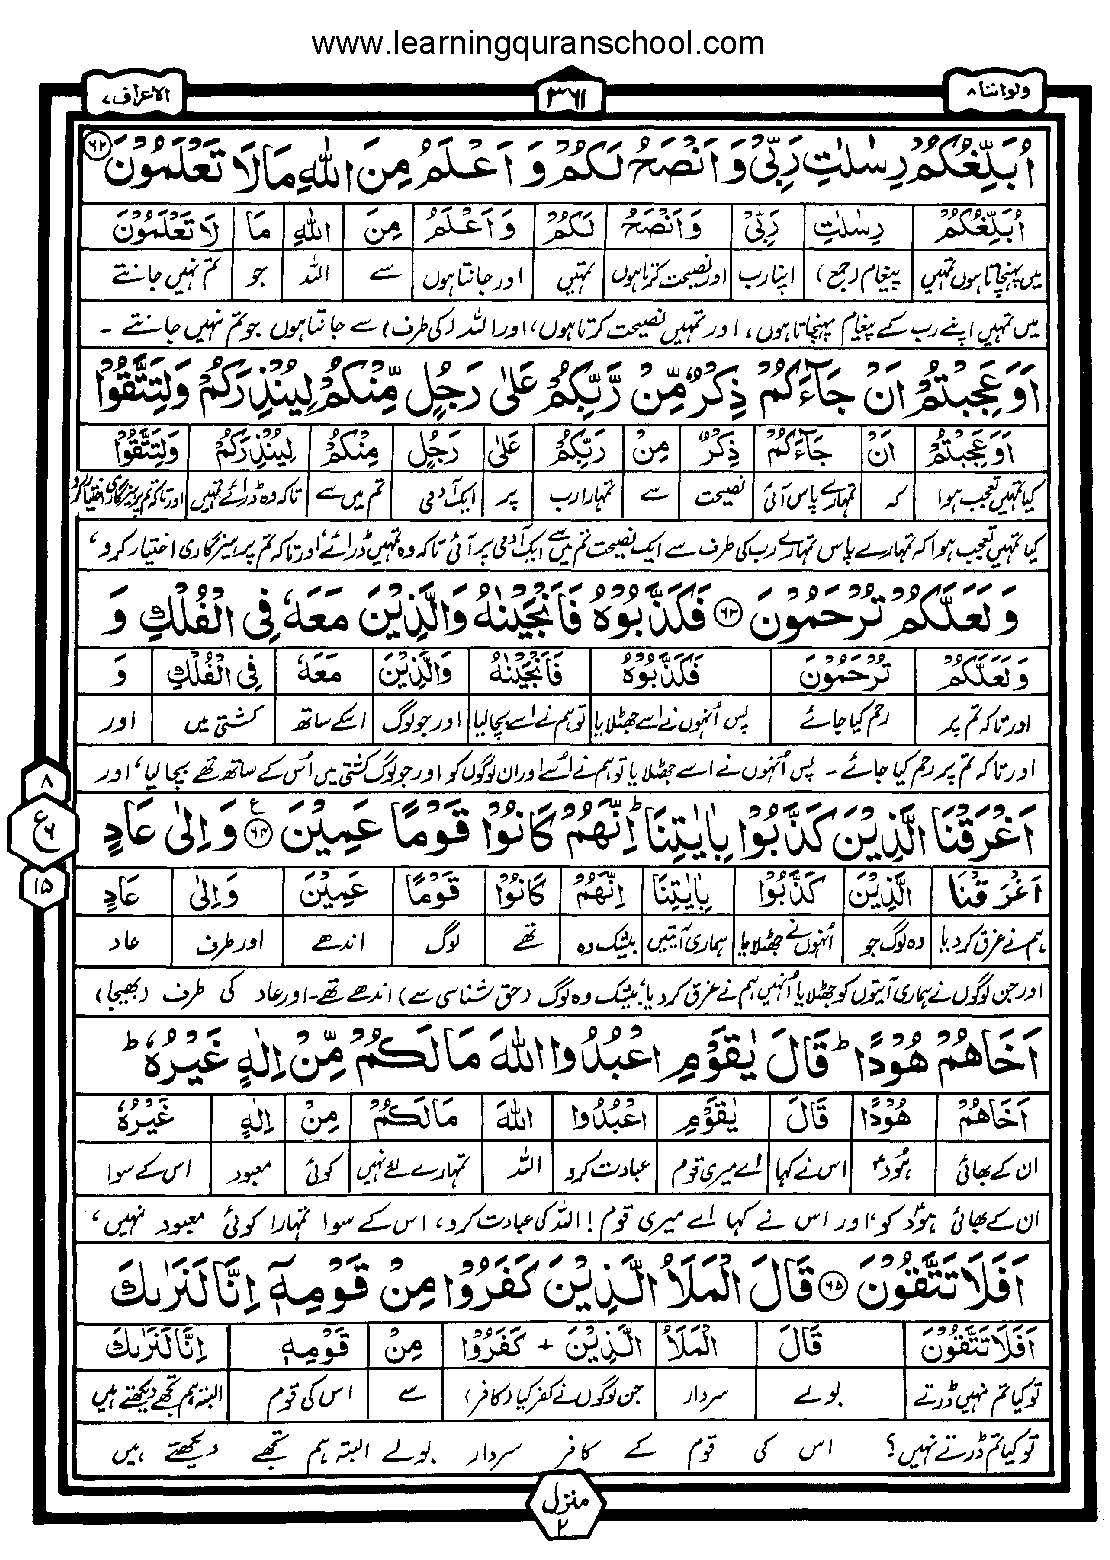 www.learningquranschool.com
ولواننا ٨ ٣٦١ الاعراف ٧
اُبَلِّغُكُمْ رِسٰلٰتِ رَبِّیْ وَاَنْصَحُ لَكُمْ وَ اَعْلَمُ مِنَ اللّٰهِ مَا لَا تَعْلَمُوْنَ ٦٢
اُبَلِّغُكُمْ رِسٰلٰتِ رَبِّیْ وَاَنْصَحُ لَكُمْ وَاَعْلَمُ مِنَ اللّٰهِ مَا لَا تَعْلَمُوْنَ
میں پہنچاتا ہوں تمہیں پیغام (جمع) اپنا رب اور نصیحت کرتا ہوں تمہیں اور جانتا ہوں سے اللہ جو تم نہیں جانتے
میں تمہیں اپنے رب کے پیغام پہنچاتا ہوں، اور تمہیں نصیحت کرتا ہوں، اور اللہ (کی طرف) سے جانتا ہوں جو تم نہیں جانتے ۔
اَوَعَجِبْتُمْ اَنْ جَآءَكُمْ ذِكْرٌ مِّنْ رَّبِّكُمْ عَلٰی رَجُلٍ مِّنْكُمْ لِیُنْذِرَكُمْ وَلِتَتَّقُوْا
اَوَعَجِبْتُمْ اَنْ جَآءَكُمْ ذِكْرٌ مِنْ رَبِّكُمْ عَلٰی رَجُلٍ مِنْكُمْ لِیُنْذِرَكُمْ وَلِتَتَّقُوْا
کیا تمہیں تعجب ہوا کہ تمہارے پاس آئی نصیحت سے تمہارا رب پر ایک آدمی تم میں سے تاکہ وہ ڈرائے تمہیں اور تاکہ تم پرہیزگاری اختیار کرو
کیا تمہیں تعجب ہوا کہ تمہارے پاس تمہارے رب کی طرف سے ایک نصیحت تم میں سے ایک آدمی پر آئی تاکہ وہ تمہیں ڈرائے، اور تاکہ تم پرہیزگاری اختیار کرو،
وَلَعَلَّكُمْ تُرْحَمُوْنَ ٦٣ فَكَذَّبُوْهُ فَاَنْجَیْنٰهُ وَالَّذِیْنَ مَعَهٗ فِی الْفُلْكِ وَ
وَلَعَلَّكُمْ تُرْحَمُوْنَ فَكَذَّبُوْهُ فَاَنْجَیْنٰهُ وَالَّذِیْنَ مَعَهٗ فِی الْفُلْكِ وَ
اور تاکہ تم پر رحم کیا جائے پس اُنہوں نے اسے جھٹلایا تو ہم نے اسے بچا لیا اور جو لوگ اسکے ساتھ کشتی میں اور
اور تاکہ تم پر رحم کیا جائے ۔ پس اُنہوں نے اسے جھٹلایا تو ہم نے اُسے اور ان لوگوں کو اور جو لوگ کشتی میں اُس کے ساتھ تھے بچا لیا، اور
اَغْرَقْنَا الَّذِیْنَ كَذَّبُوْا بِاٰیٰتِنَا ؕ اِنَّهُمْ كَانُوْا قَوْمًا عَمِیْنَ ٦٤ ع وَاِلٰی عَادٍ
٨
ع ٦
١٥
اَغْرَقْنَا الَّذِیْنَ كَذَّبُوْا بِاٰیٰتِنَا اِنَّهُمْ كَانُوْا قَوْمًا عَمِیْنَ وَاِلٰی عَادٍ
ہم نے غرق کر دیا وہ لوگ جو اُنہوں نے جھٹلایا ہماری آیتیں بیشک وہ تھے لوگ اندھے اور طرف عاد
اور جن لوگوں نے ہماری آیتوں کو جھٹلایا اُنہیں ہم نے غرق کر دیا، بیشک وہ لوگ (حق شناسی سے) اندھے تھے۔ اور عاد کی طرف (بھیجا)
اَخَاهُمْ هُوْدًا ؕ قَالَ یٰقَوْمِ اعْبُدُوا اللّٰهَ مَا لَكُمْ مِّنْ اِلٰهٍ غَیْرُهٗ ؕ
اَخَاهُمْ هُوْدًا قَالَ یٰقَوْمِ اعْبُدُوا اللّٰهَ مَا لَكُمْ مِنْ اِلٰهٍ غَیْرُهٗ
ان کے بھائی ہودؑ اس نے کہا اے میری قوم عبادت کرو اللہ تمہارے لئے نہیں کوئی معبود اس کے سوا
ان کے بھائی ہودؑ کو، اور اس نے کہا اے میری قوم! اللہ کی عبادت کرو، اس کے سوا تمہارا کوئی معبود نہیں،
اَفَلَا تَتَّقُوْنَ ٦٥ قَالَ الْمَلَاُ الَّذِیْنَ كَفَرُوْا مِنْ قَوْمِهٖۤ اِنَّا لَنَرٰىكَ
اَفَلَا تَتَّقُوْنَ قَالَ الْمَلَاُ الَّذِیْنَ + كَفَرُوْا مِنْ قَوْمِهٖ اِنَّا لَنَرٰىكَ
تو کیا تم نہیں ڈرتے بولے سردار جن لوگوں نے کفر کیا (کافر) سے اس کی قوم البتہ ہم تجھے دیکھتے ہیں
تو کیا تم ڈرتے نہیں؟ اس کی قوم کے کافر سردار بولے البتہ ہم تجھے دیکھتے ہیں
منزل ٢